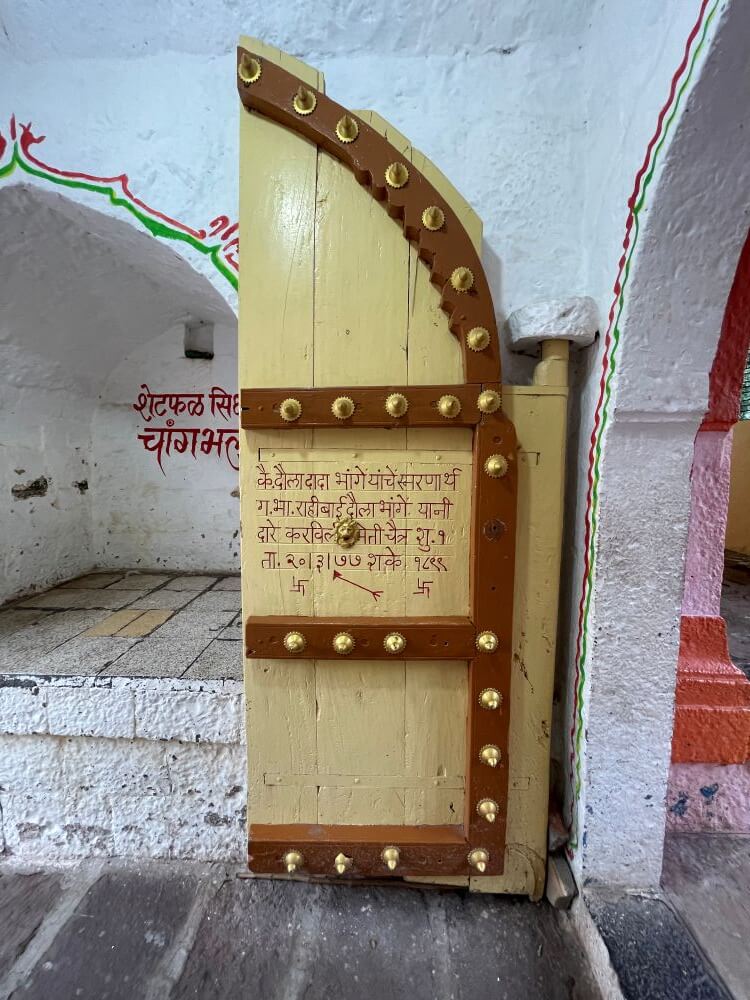 शेटफळ सिध
चांगभल
कै. दौलादादा भांगे यांचे स्मरणार्थ
ग. भा. राहीबाई दौला भांगे यानी
दारे करविली मिती चैत्र शु. १
ता. २०|३|७७ शके १८९९
卐 卐